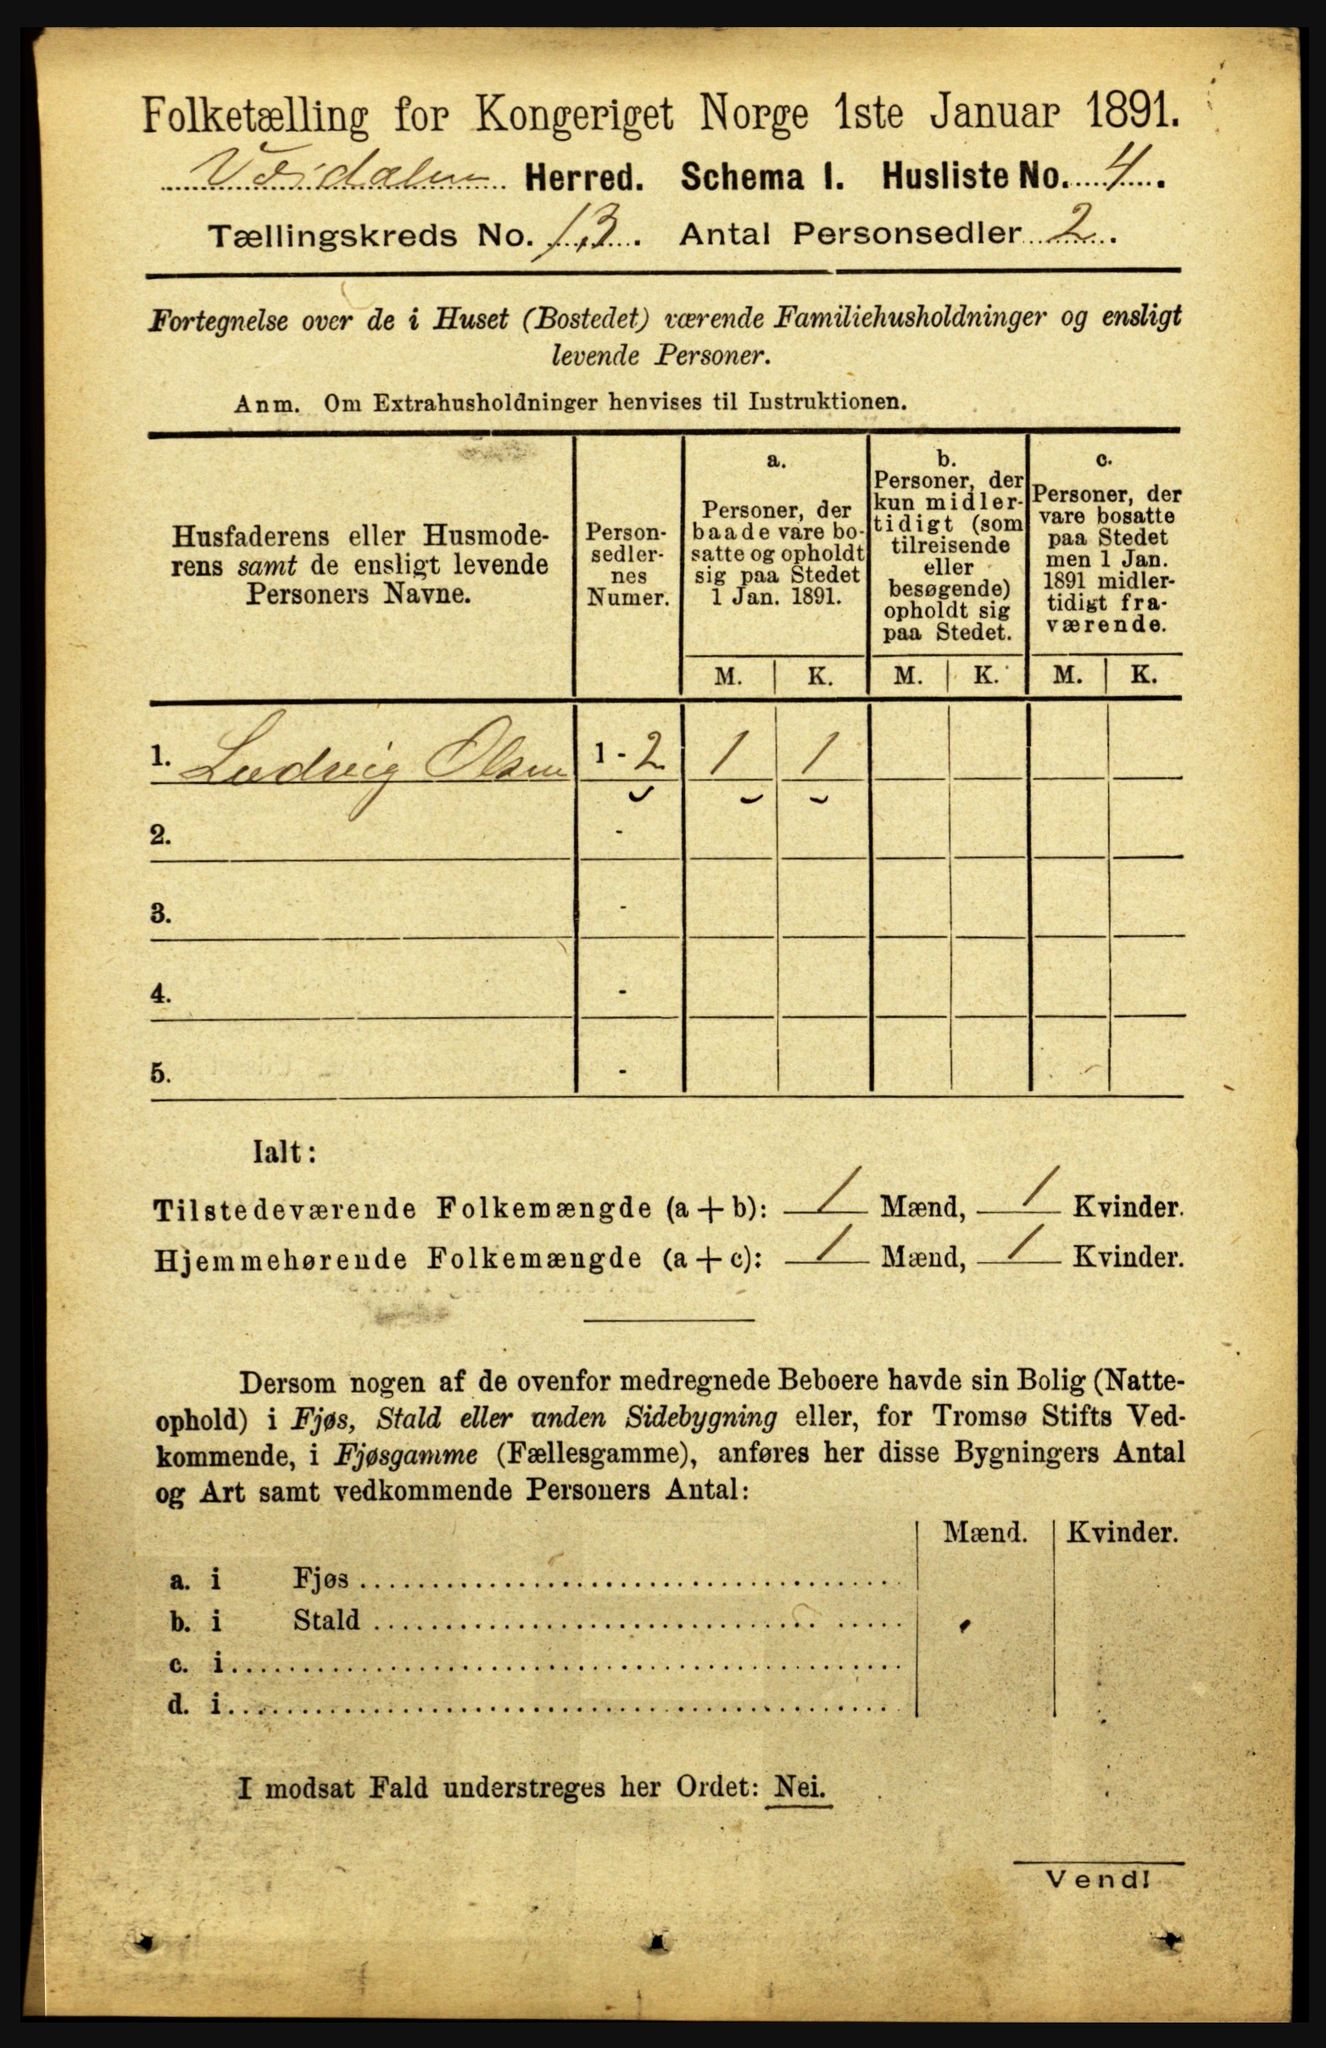 Folketælling for Kongeriget Norge 1ste Januar 1891.
Værdalen Herred. Schema I. Husliste No. 4.
Tællingskreds No. 13. Antal Personsedler 2.
Fortegnelse over de i Huset (Bostedet) værende Familiehusholdninger og ensligt
levende Personer.
Anm. Om Extrahusholdninger henvises til Instruktionen.
Husfaderens eller Husmode-
rens samt de ensligt levende
Personers Navne.
Person-
sedler-
nes
Numer.
a.
Personer, der
baade vare bo-
satte og opholdt
sig paa Stedet
1 Jan. 1891.
b.
Personer, der
kun midler-
tidigt (som
tilreisende
eller
besøgende)
opholdt sig
paa Stedet.
c.
Personer, der
vare bosatte
paa Stedet
men 1 Jan.
1891 midler-
tidigt fra-
værende.
M. K. M. K. M. K.
1. Ludvig Olsen 1 - 2 1 1
2. -
3. -
4. -
5. -
Ialt:
Tilstedeværende Folkemængde (a + b): 1 Mænd, 1 Kvinder.
Hjemmehørende Folkemængde (a + c): 1 Mænd, 1 Kvinder.
Dersom nogen af de ovenfor medregnede Beboere havde sin Bolig (Natte-
ophold) i Fjøs, Stald eller anden Sidebygning eller, for Tromsø Stifts Ved-
kommende, i Fjøsgamme (Fællesgamme), anføres her disse Bygningers Antal
og Art samt vedkommende Personers Antal:
Mænd. Kvinder.
a. i Fjøs
b. i Stald
c. i
d. i
I modsat Fald understreges her Ordet: Nei.
Vend!